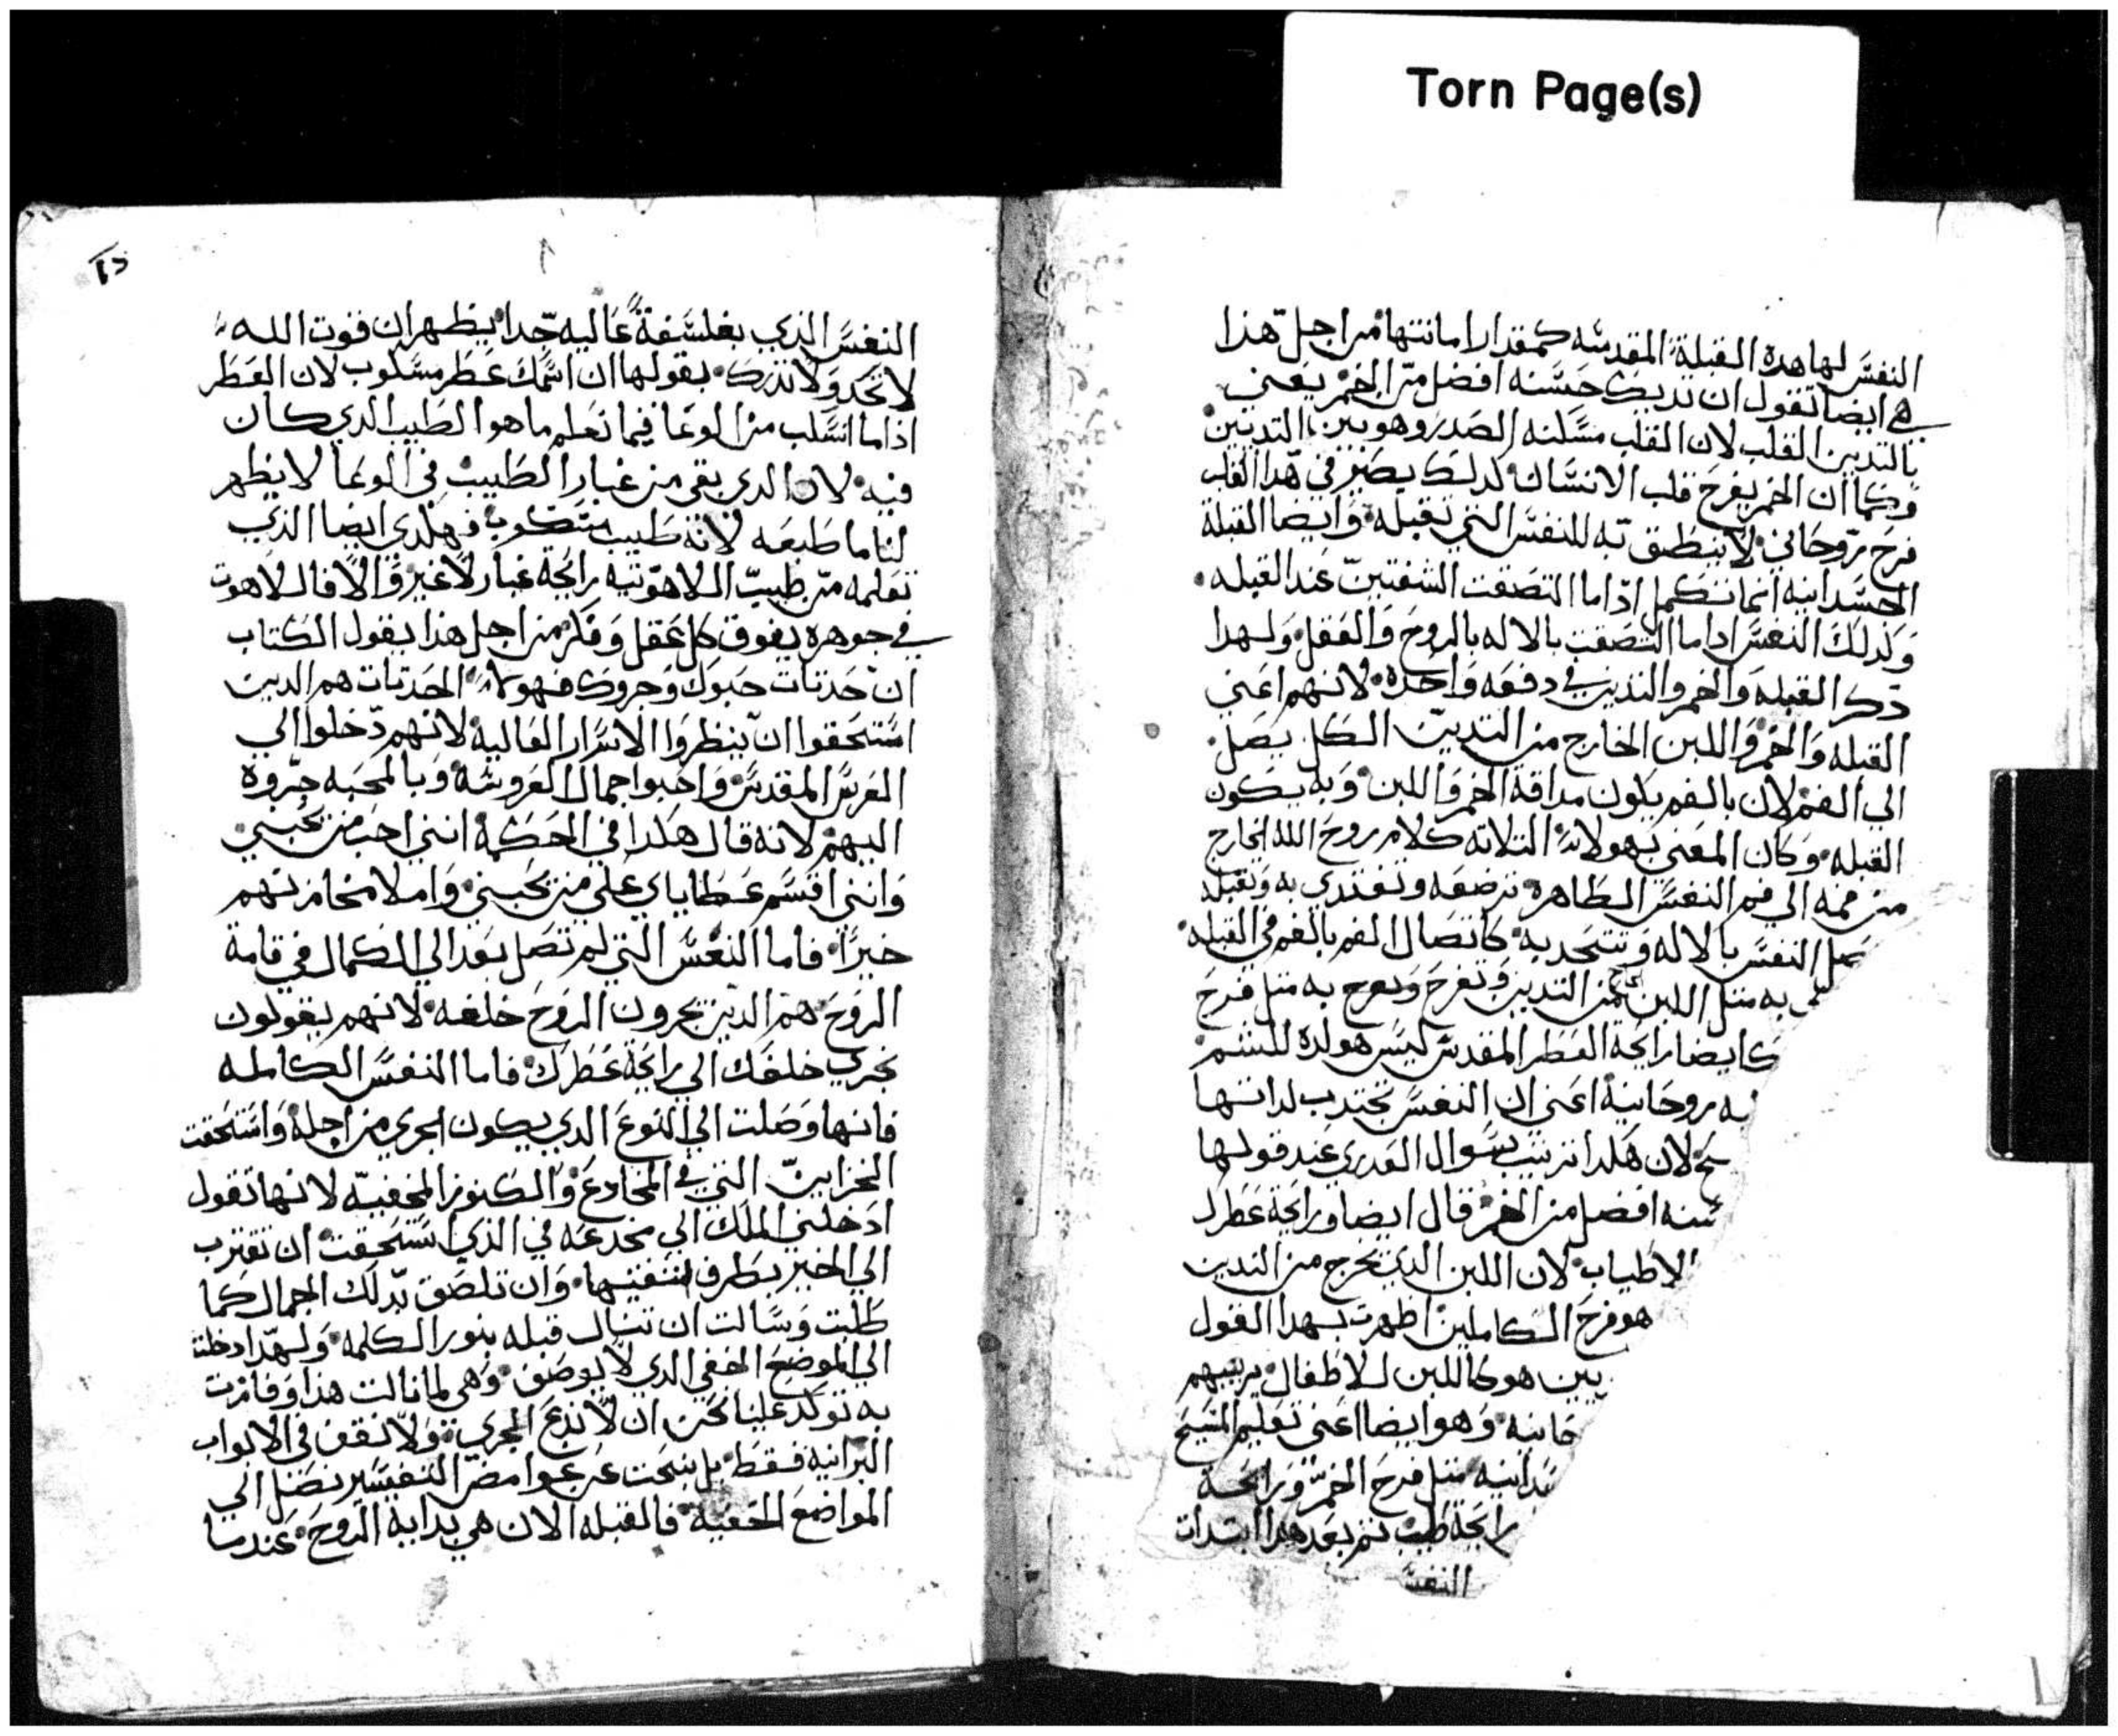 Torn Page(s)
النفس لها هده القبلة المقدسه كمقدار امانتها من اجل هذا
هي ايضا تقول ان تدييك حسنه افضل من الخمر يعني
بالتديين القلب لان القلب مسكنه الصدر وهو بين التديين
وكما ان الخمر يفرح قلب الانسان كدلك يصير في هدا القلب
فرح روحاني لا ينطق به للنفس التي تقبله وايضا القبلة
الجسدانيه انما تكمل ادا ما التصقت الشفتين عند القبله
وكدلك النفس ادا ما التصقت بالاله بالروح والعقل ولهدا
دكر القبله والخمر والتديين في دفعه واحده لانهم اعني
القبله والخمر واللبن الخارج من التديين الكل يصل
الي الفم لان بالفم يكون مداقة الخمر واللبن وبه يكون
القبله وكان المعني بهولاء التلاته كلام روح الله الخارج
من فمه الي فم النفس الطاهره ترضعه وتغتدي به وتقبله
النفس بالاله وتتحد به كاتصال الفم بالفم في القبله
به متل اللبن من التديين وتفرح به متل فرح
ك ايضا رايحة العطر المقدس ليس هو لده للشم
روحانية اعني ان النفس تجتدب لداتها
لان هكدا ترتيب سوال العدري عند قولها
سنه افضل من الخمر قال ايضا ورايحة عطرك
الاطياب لان اللبن الدي يخرج من التديين
هو فرح الكاملين اظهرت بهدا القول
يين هو كاللبن للاطفال يربيهم
حانيه وهو ايضا اعني تعليم المسيح
سدانيه متل فرح الخمر ورايحة
رايحة طيب تم بعد هدا ابتدات
النفس
النفس الذي بفلسفة عاليه جدا يظهر ان قوت الله
لا تحد ولا تدرك بقولها ان اسمك عطر مسكوب لان العطر
اذا ما انسكب من الوعا فما نعلم ما هو الطيب الدي كان
فيه لان الدي بقي من غبار الطيب في الوعا لا يظهر
لنا ما طبعه لانه طيب مسكوب فهكدي ايضا الذي
نعلمه من طيب اللاهوتيه رايحة غبار لا غير والا فاللاهوت
في جوهره يفوق كل عقل وفكر من اجل هذا يقول الكتاب
ان حدتات حبوك وجروك فهولاء الحدتات هم الدين
استحقوا ان ينظروا الاسرار العالية لانهم دخلوا الي
العرس المقدس واحبوا جمال العروسة وبالمحبه جروه
اليهم لانه قال هكدا في الحكمة انني احب من يحبني
وانني اقسم عطاياي علي من يحبني واملا مخازنهم
خيرا فاما النفس التي لم تصل بعد الي الكمال في قامة
الروح هم الدين يجرون الروح خلفه لانهم يقولون
نجري خلفك الي رايحة عطرك فاما النفس الكامله
فانها وصلت الي النوع الدي يكون الجري من اجله واستحقت
الخزاين التي في المخادع والكنوز المخفيه لانها تقول
ادخلني الملك الي مخدعه في الذي استحقت ان تقترب
الي الخير بطرف شفتيها وان تلصق بدلك الجمال كما
طلبت وسالت ان تنال قبله بنور الكلمه ولهدا دخلت
الي الموضع الخفي الدي لا يوصف وهي لما نالت هذا وفازت
به توكد علينا نحن ان لا ندع الجري ولا نقف في الابواب
البرانية فقط بل نبحث عن غوامض التفسير نصل الي
المواضع الخفية فالقبله الان هي بداية الروح عندما